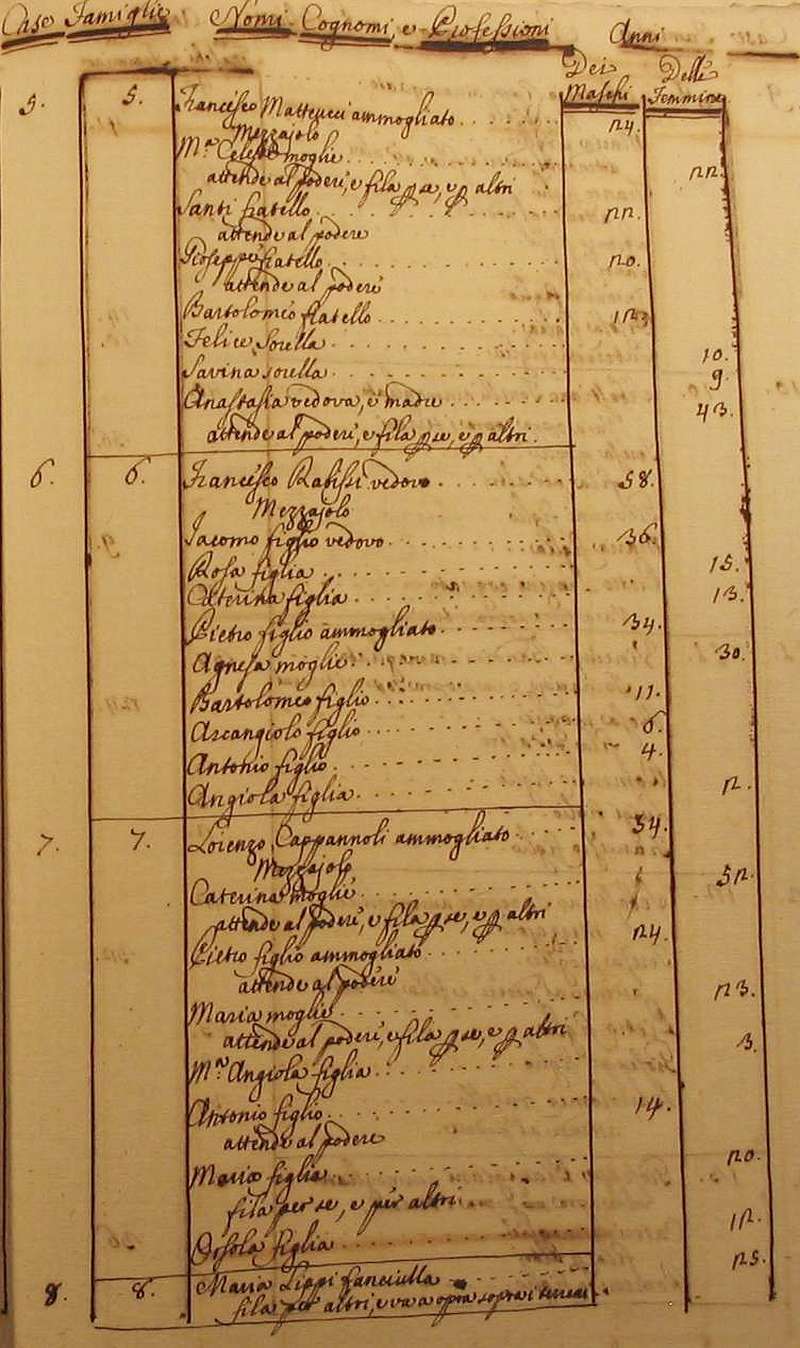 Case Famiglie Nomi Cognomi, e Professioni Anni
Dei Maschi Delle Femmine
5. 5. Francesco Matteucci ammogliato 24.
Mezzajolo
M.a Celeste moglie 22.
attende al podere, e fila p se, e p altri
Santi fratello 22.
attende al podere
Gioseppe fratello 20.
attende al podere
Bartolomeo fratello
Felice sorella 10.
Savina sorella 9.
Anastasia vedova, e madre 43.
attende al podere, e fila p se, e p altri.
6. 6. Francesco vedovo 58.
Mezzajolo
Iacomo figlio vedovo 36.
Rosa figlia 15.
Caterina figlia 13.
Pietro figlio ammogliato 34.
Agnesa moglie 30.
Bartolomeo figlio 11.
Arcangiolo figlio 6.
Antonio figlio 4.
Angiola figlia 2.
7. 7. Lorenzo Cappannoli ammogliato 54.
Mezzajolo
Caterina moglie 52.
attende al podere, e fila p se, e p altri
Pietro figlio ammogliato 24.
attende al podere
Maria moglie 23.
attende al podere, e fila p se, e p altri
M.a Angiola figlia 3.
Antonio figlio 14.
attende al podere
Maria figlia 20.
fila per se, e per altri
Orsola figlia 12.
8. 8. Maria Lippi fanciulla 25.
fila per altri, e va a opra sopra i terreni